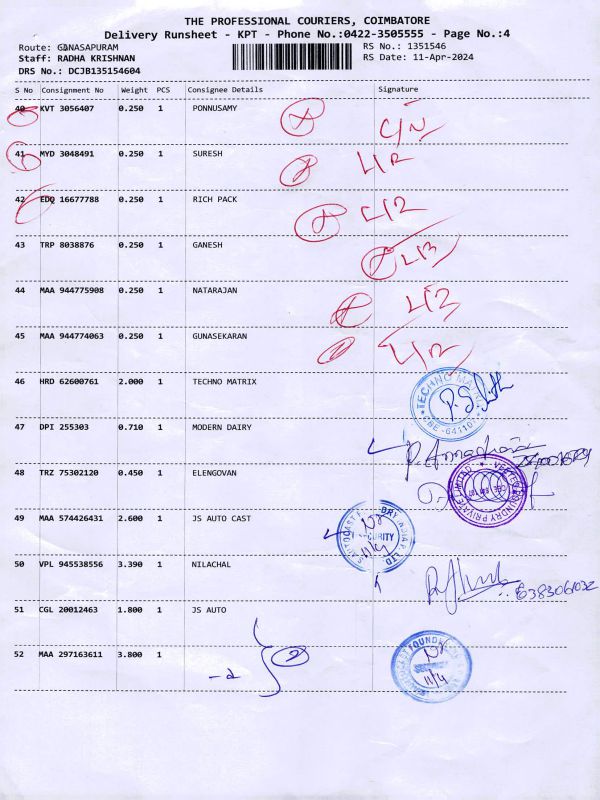 THE PROFESSIONAL COURIERS, COIMBATORE
Delivery Runsheet - KPT - Phone No.:0422-3505555 - Page No.:4
Route: GANASAPURAM RS No.: 1351546
Staff: RADHA KRISHNAN RS Date: 11-Apr-2024
DRS No.: DCJB135154604
S No Consignment No Weight PCS Consignee Details Signature
40 KVT 3056407 0.250 1 PONNUSAMY
C/N
41 MYD 3048491 0.250 1 SURESH
42 EDQ 16677788 0.250 1 RICH PACK
43 TRP 8038876 0.250 1 GANESH
44 MAA 944775908 0.250 1 NATARAJAN
45 MAA 944774063 0.250 1 GUNASEKARAN
46 HRD 62600761 2.000 1 TECHNO MATRIX
47 DPI 255303 0.710 1 MODERN DAIRY
48 TRZ 75302120 0.450 1 ELENGOVAN
49 MAA 574426431 2.600 1 JS AUTO CAST
SECURITY
11/4
50 VPL 945538556 3.390 1 NILACHAL
6383061032
51 CGL 20012463 1.800 1 JS AUTO
52 MAA 297163611 3.800 1
2
11/4